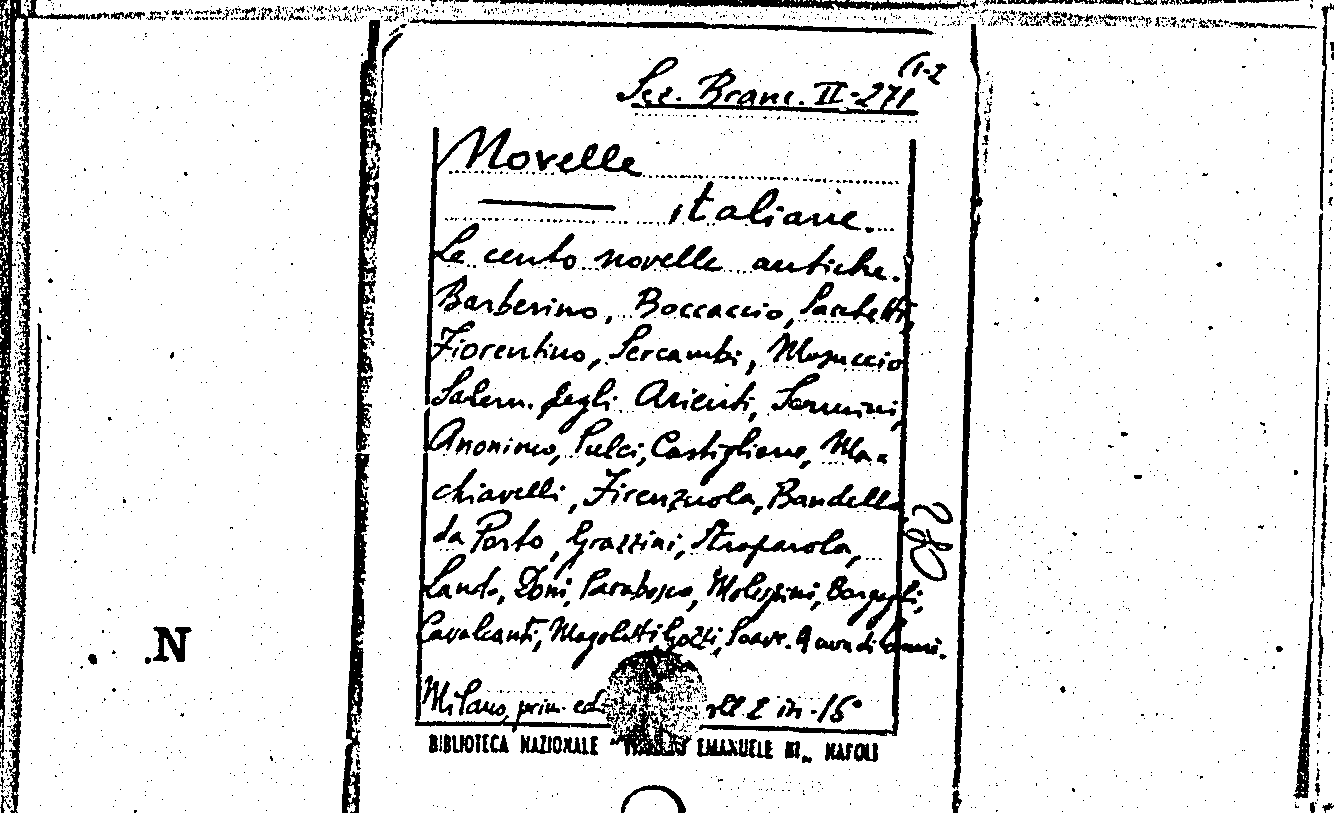 (1-2
Sez. Branc. II-271
Novelle
italiane.
Le cento novelle antiche.
Barberino, Boccaccio, Sacchetti,
Fiorentino, Sercambi, Masuccio
Salern. degli Arienti, Sermini,
Anonimo, Pulci, Castiglione, Ma-
chiavelli, Firenzuola, Bandello,
da Porto, Grazzini, Straparola,
Lando, Doni, Parabosco, Malespini, Bargagli,
Cavalcanti, Magalotti, Gozzi, Soave. A cura di
Milano, prim. ed. 2 in-16°
280
.N
BIBLIOTECA NAZIONALE " EMANUELE III„ NAPOLI